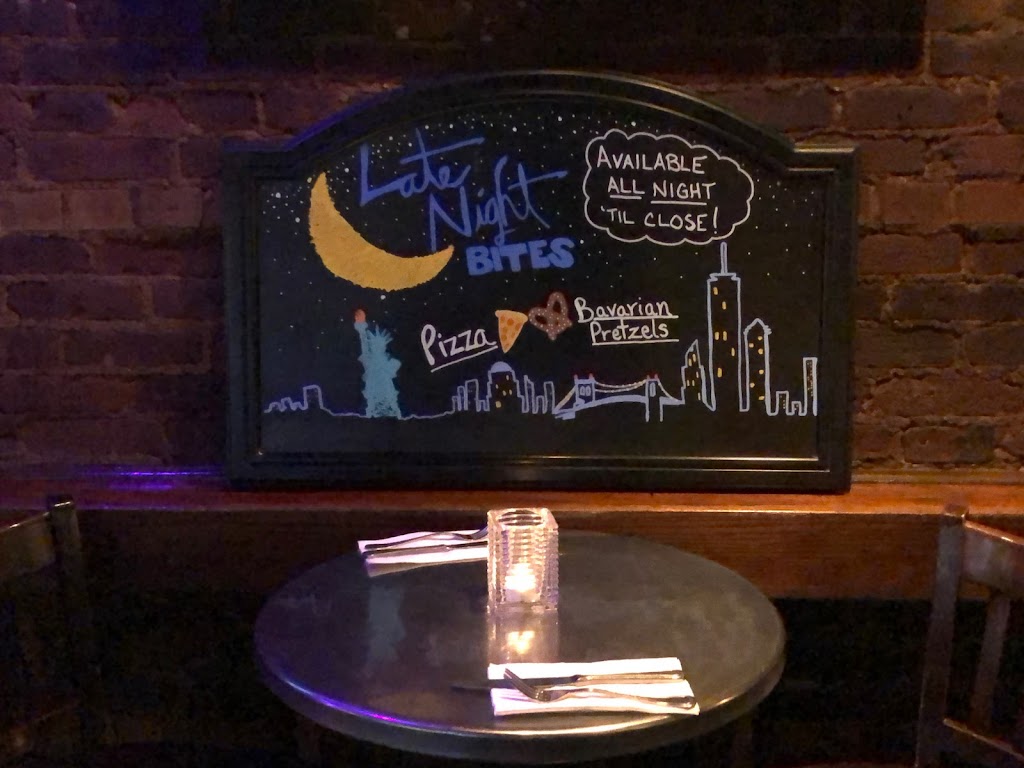 Late
Night
BITES
AVAILABLE
ALL NIGHT
'TIL CLOSE!
Pizza
Bavarian
Pretzels